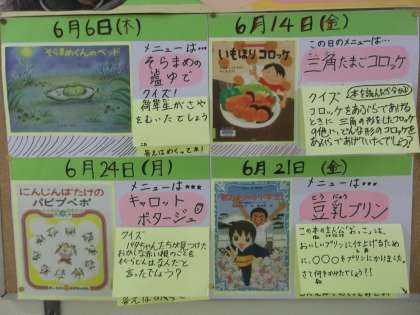 6月6日(木)
そらまめくんのベッド
メニューは…
そらまめの
塩ゆで
クイズ!
何年生がさや
をむいたでしょう
6月14日(金)
いもほりコロッケ
この日のメニューは…
三角たまごコロッケ
クイズ
コロッケをあぶらであげる
ときに三角の形をしたコロッケ
の他に、どんな形のコロッケを
あぶらであげていたでしょう?
6月24日(月)
にんじんばたけの
パピプペポ
メニューは…
キャロット
ポタージュ
クイズ
おかしな赤い根のことを
なんだと
言ったでしょう?
6月21日(金)
メニューは…
とうにゅう
豆乳プリン
この本の主人公“おっこ”は、
おいしいプリンに仕上げるため
に、〇〇〇をプリンにかけました。
さて何をかけたでしょう?!